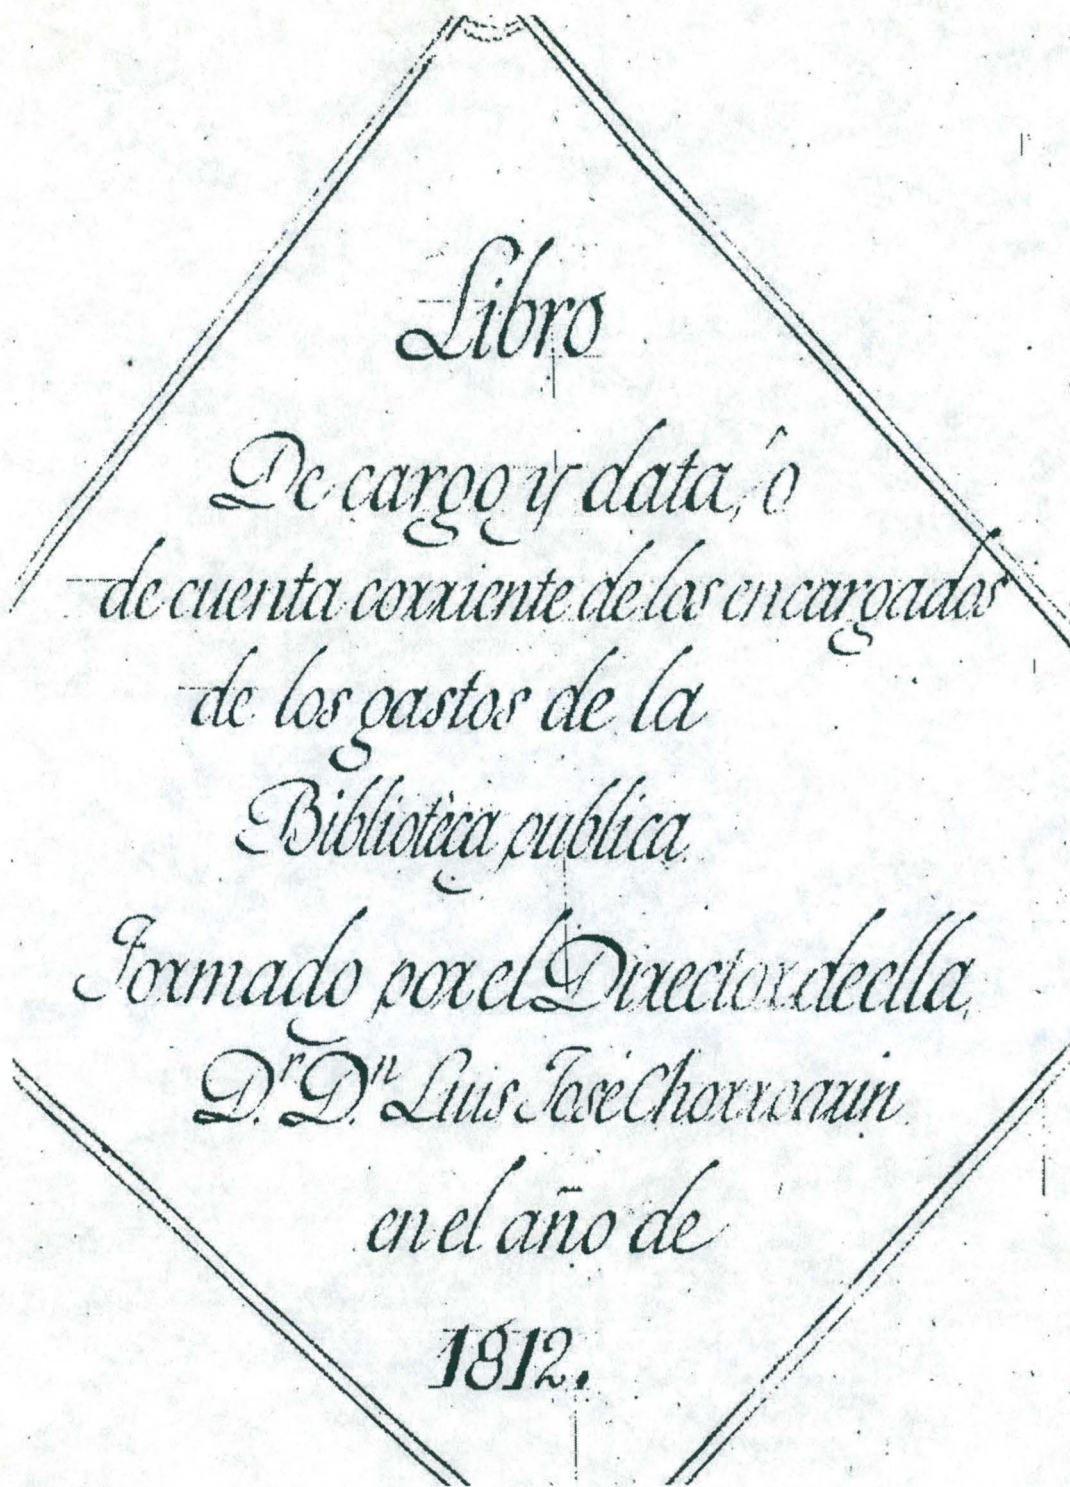 Libro
De cargo y data, ô
de cuenta corriente de los encargados
de los gastos de la
Bibliotèca publica
Formado por el Director de ella,
D.r D.n Luis José Chorroarin
en el año de
1812.